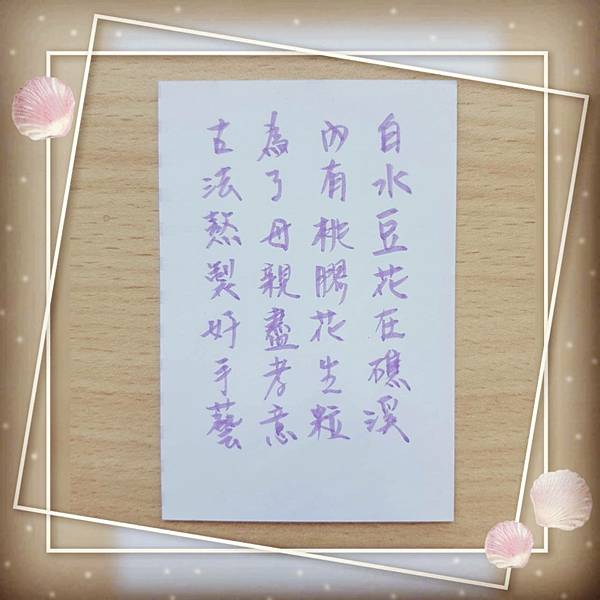 白水豆花在礁溪
內有桃膠花生粒
為了母親盡孝意
古法熬製好手藝